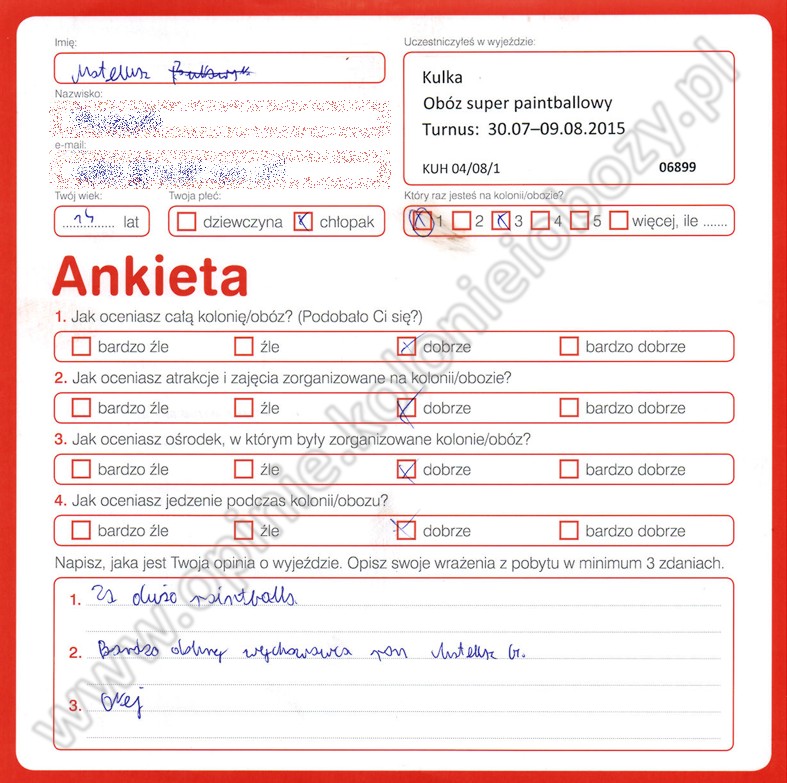 Imię:
Mateusz
Nazwisko:
e-mail:
Twój wiek:
14 lat
Twoja płeć:
dziewczyna chłopak
Uczestniczyłeś w wyjeździe:
Kulka
Obóz super paintballowy
Turnus: 30.07–09.08.2015
KUH 04/08/1 06899
Który raz jesteś na kolonii/obozie?
1 2 3 4 5 więcej, ile .......
Ankieta
1. Jak oceniasz całą kolonię/obóz? (Podobało Ci się?)
bardzo źle źle dobrze bardzo dobrze
2. Jak oceniasz atrakcje i zajęcia zorganizowane na kolonii/obozie?
bardzo źle źle dobrze bardzo dobrze
3. Jak oceniasz ośrodek, w którym były zorganizowane kolonie/obóz?
bardzo źle źle dobrze bardzo dobrze
4. Jak oceniasz jedzenie podczas kolonii/obozu?
bardzo źle źle dobrze bardzo dobrze
Napisz, jaka jest Twoja opinia o wyjeździe. Opisz swoje wrażenia z pobytu w minimum 3 zdaniach.
1. Za dużo paintballa
2. Bardzo dobry wychowawca pan Mateusz G.
3. Okej
www.opinie.kolonieiobozy.pl